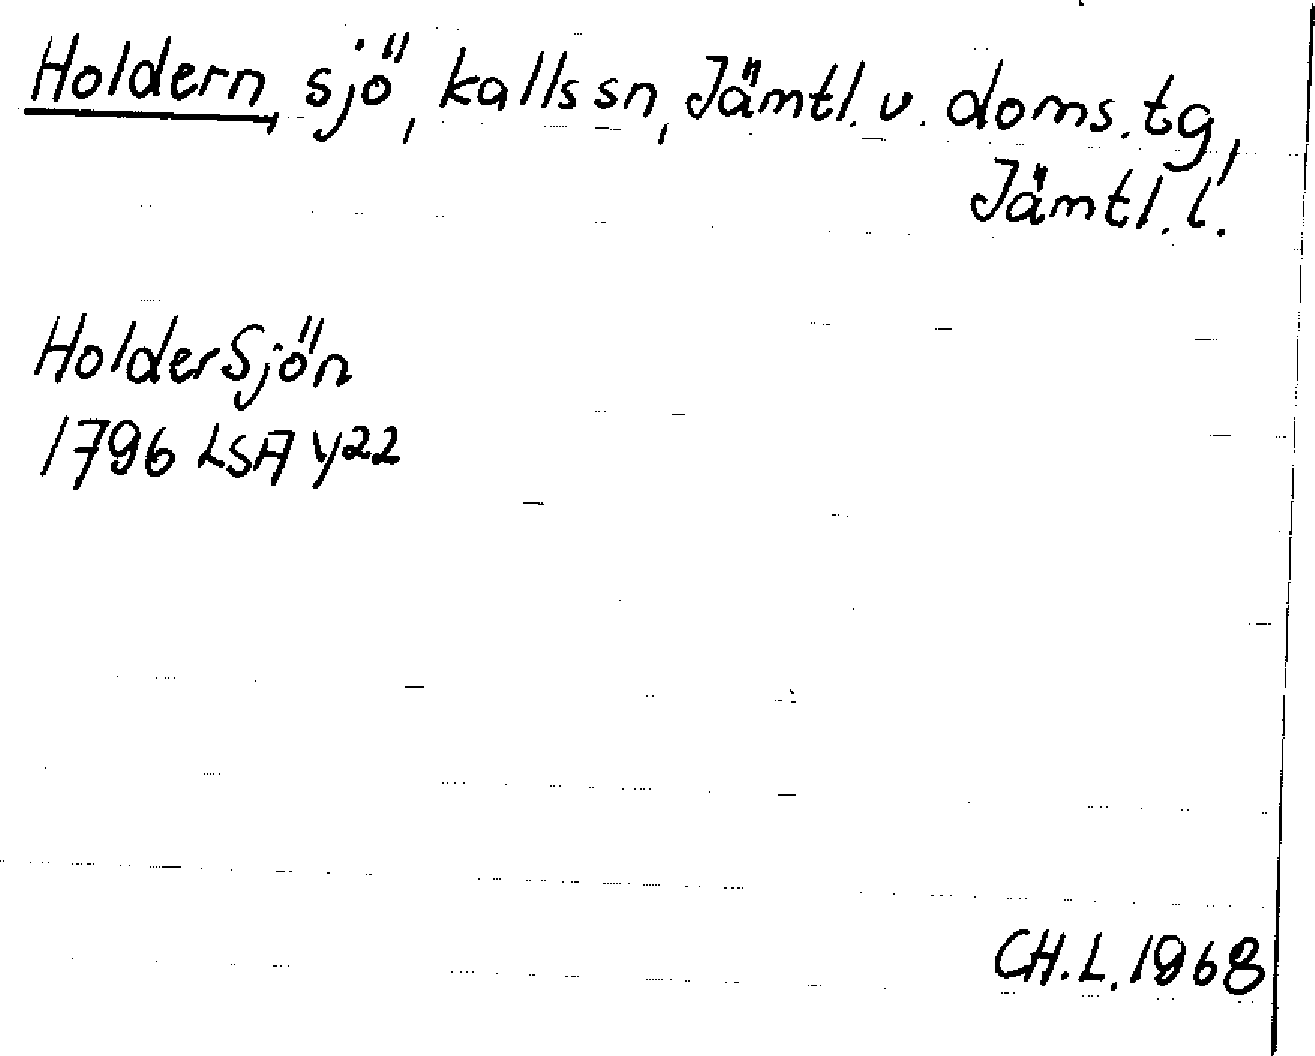 Holdern, sjö, kalls sn, Jämtl. v. doms. tg,
Jämtl. l.
HolderSjön
1796 LSA Y22
CH.L. 1968